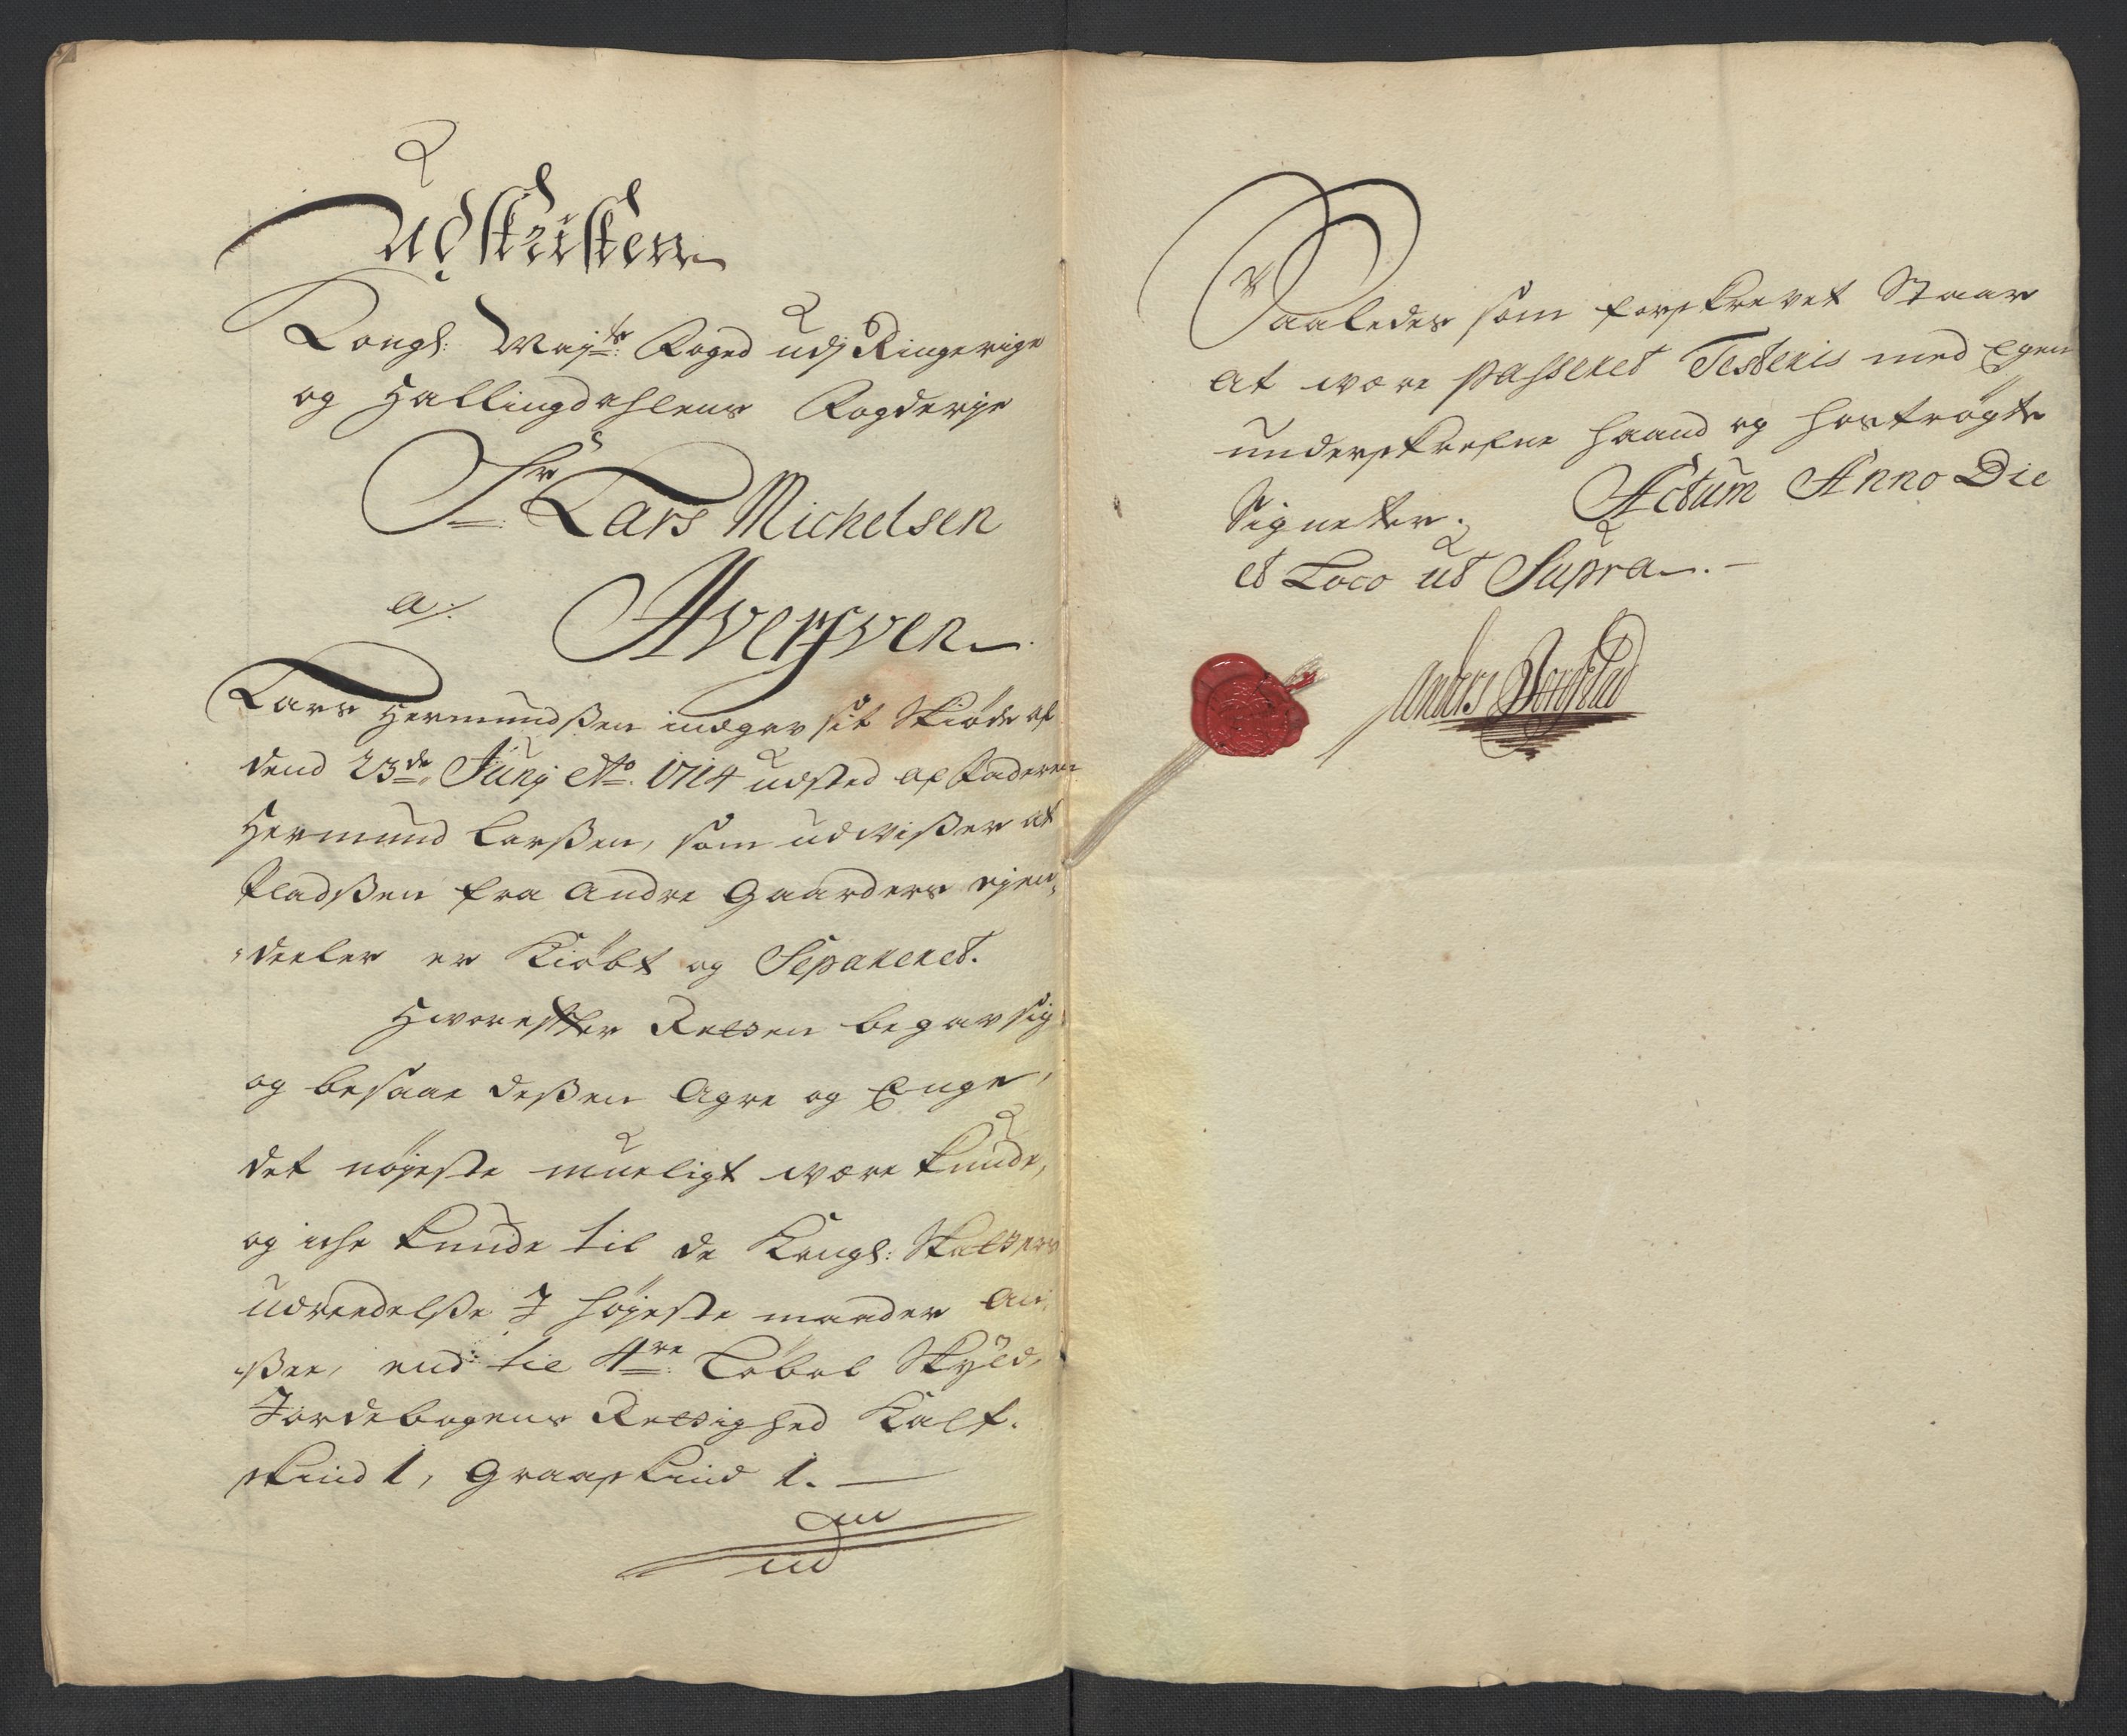 Udskriften
Kongl: Maj:ts Foged udj Ringerige
og Hallingdahlens Fogderje
Sr Lars Michelsen
a/.
Lars Hermundßen indgav sit Skiøde af
dend 23de Junj Ao. 1714 udsted af Faderen
Hermund Larßen, som udwißer at
Pladßen fra andre Gaarders ejen¬
¬deeler er Kiøbt og Separeret.
Hvorefter Retten begav sig
og besaae deßen Agre og Enge,
det nøyeste mueligt være kunde,
og iche kunde til de Kongl: Skatters
udreedelße J høyeste maader an¬
¬ßee, end til 4re Løbol Skyld,
Jordebogens Rettighed Kalf¬
skind 1, Graaskind 1. —
Saaledes som forskrevet Staar
at være passeret Testeris med Egen
underskrefne haand og hostrøgte
Signeter. Actum Anno Die
et Loco ut Supra. —
Anders